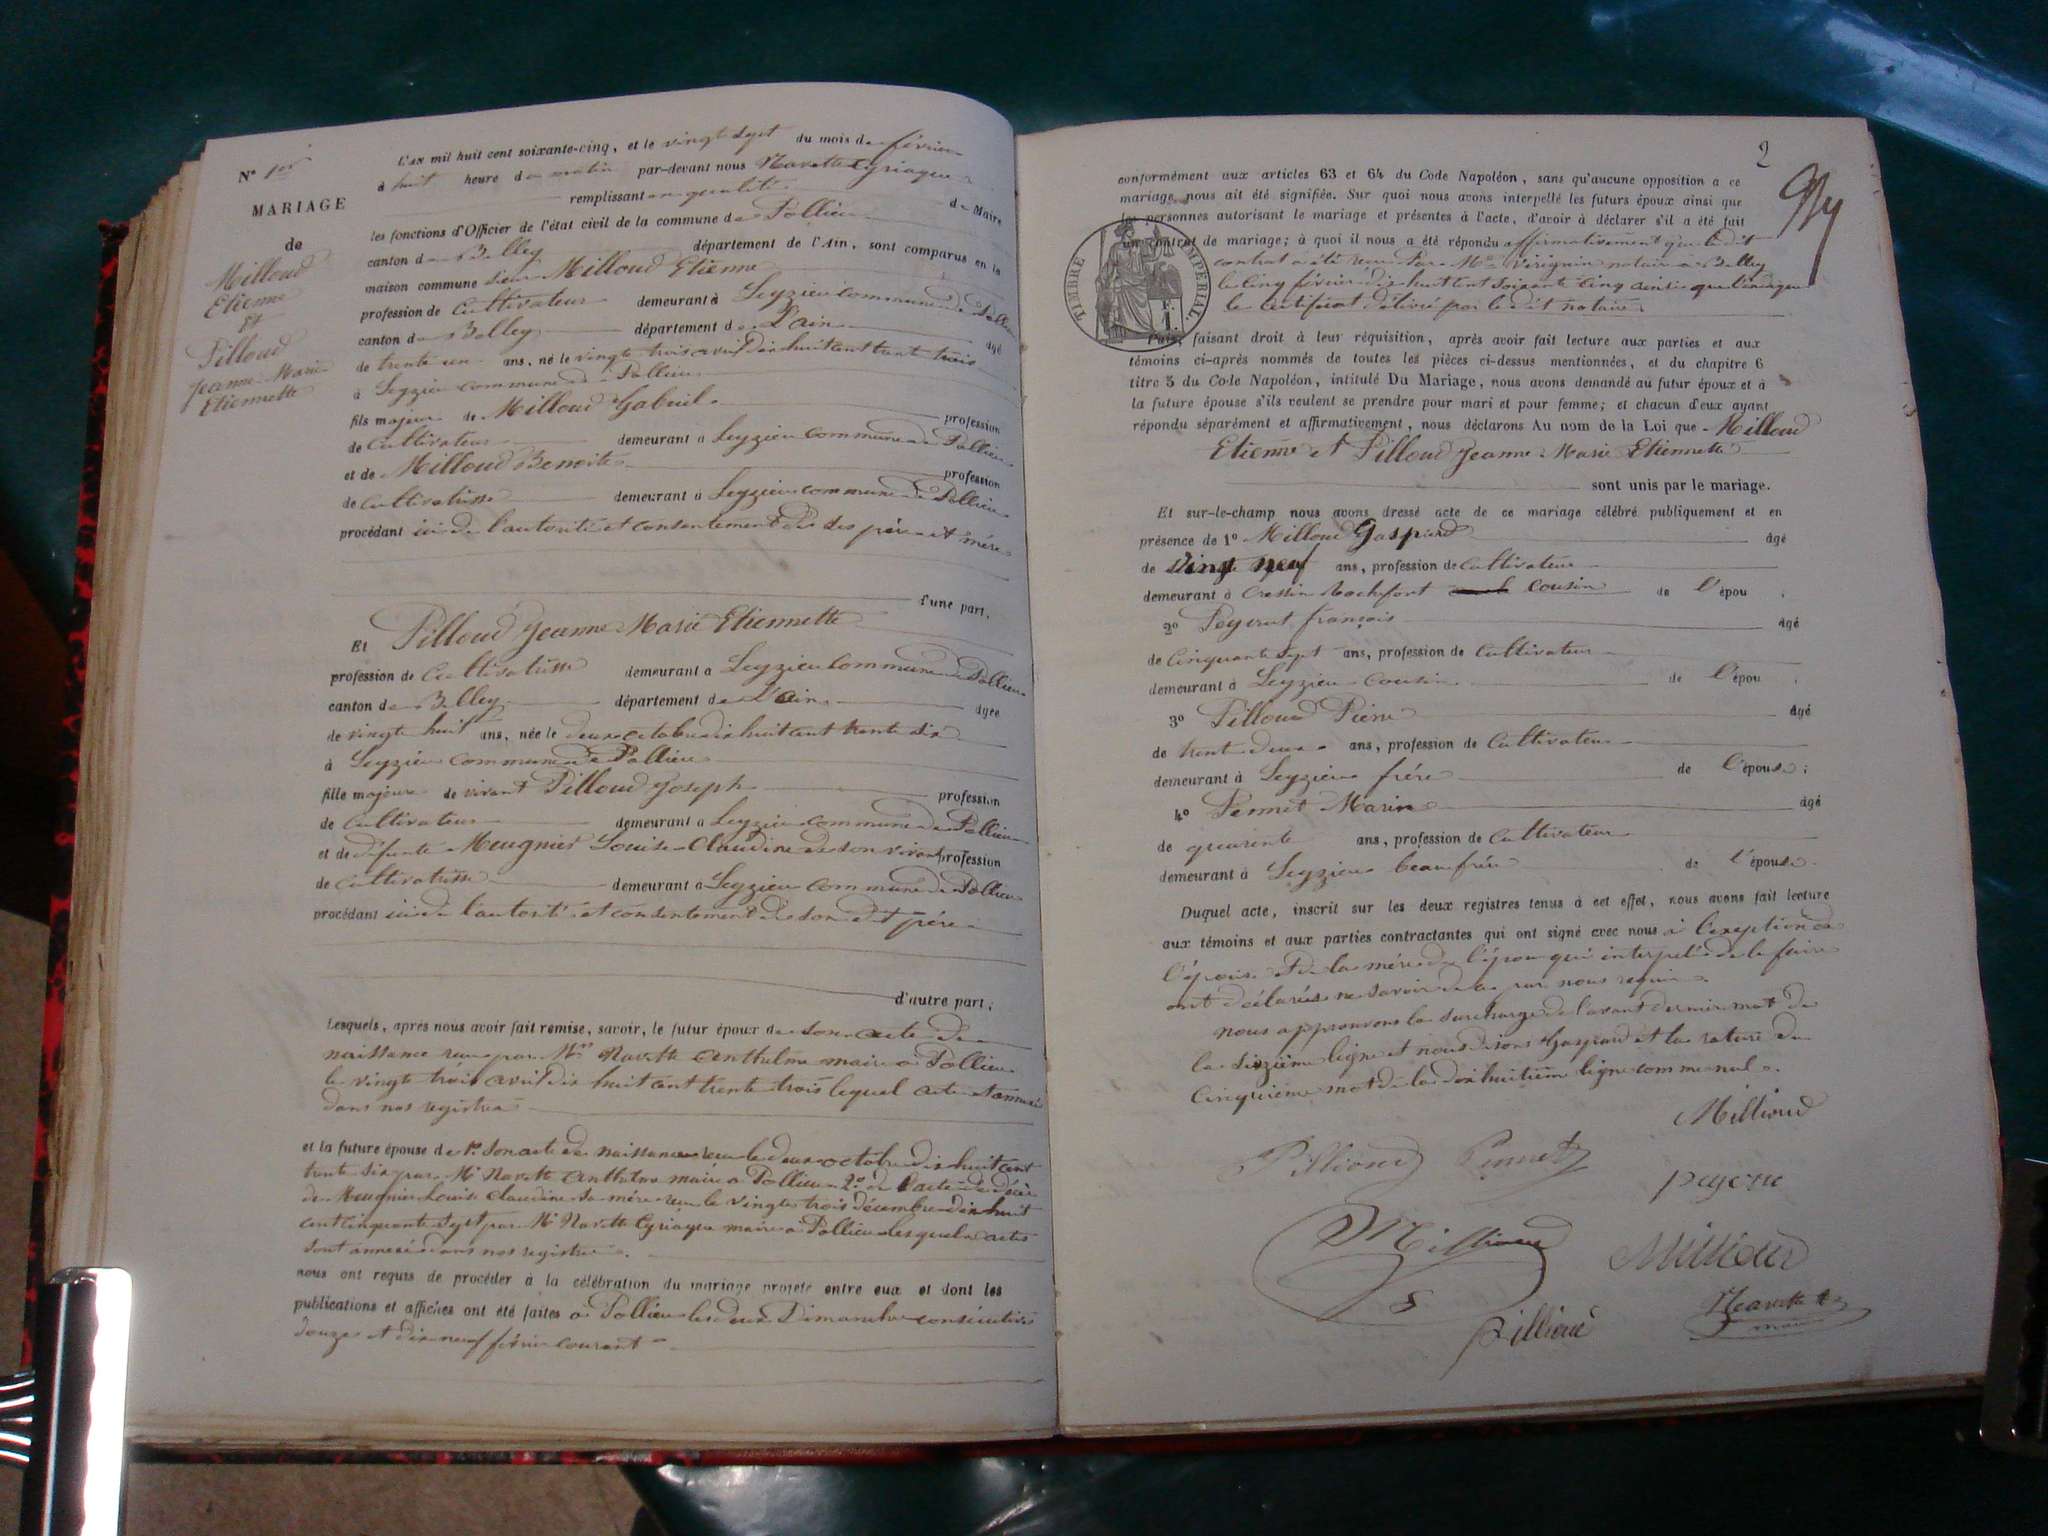 N° 1er
MARIAGE
de
Milloud
Etienne
Et
Pilloud
Jeanne Marie
Etiennette
L'an mil huit cent soixante-cinq, et le vingt sept du mois de février
à huit heure du matin par-devant nous Navette Cyriaque
remplissant en qualité de Maire
les fonctions d'Officier de l'état civil de la commune de Pollieu
canton de Belley département de l'Ain, sont comparus en la
maison commune sieur Milloud Etienne
profession de cultivateur demeurant à Leyzieu commune de Pollieu
canton de Belley département de L'ain âgé
de trente un ans, né le vingt trois avril dix huit cent trente trois
à Leyzieu commune de Pollieu
fils majeur de Milloud Gabriel profession
de cultivateur demeurant à Leyzieu commune de Pollieu
et de Milloud Benoite profession
de cultivatrisse demeurant à Leyzieu commune de Pollieu
procédant ici de l'autorité et consentement de ses père et mère
d'une part.
Et Pilloud Jeanne Marie Etiennette
profession de cultivatrisse demeurant à Leyzieu commune de Pollieu
canton de Belley département de L'ain âgée
de vingt huit ans, née le deux octobre dix huit cent trente six
à Leyzieu commune de Pollieu
fille majeure de vivant Pilloud Joseph profession
de cultivateur demeurant à Leyzieu commune de Pollieu
et de défunte Meugnier Louise Claudine de son vivant profession
de cultivatrisse demeurant à Leyzieu commune de Pollieu
procédant ici de l'autorité et consentement de son dit père
d'autre part;
Lesquels, après nous avoir fait remise, savoir, le futur époux de son acte de
naissance reçu par Mr Navette Anthelme maire à Pollieu
le vingt trois avril dix huit cent trente trois lequel acte est annexé
dans nos registres
et la future épouse de 1° son acte de naissance reçu le deux octobre dix huit cent
trente six par Mr Navette Anthelme maire à Pollieu 2° de l'acte de décès
de Meugnier Louise Claudine sa mère reçu le vingt trois décembre dix huit
cent cinquante sept par Mr Navette Cyriaque maire à Pollieu lesquels actes
sont annexés dans nos registres.
nous ont requis de procéder à la célébration du mariage projeté entre eux et dont les
publications et affiches ont été faites à Pollieu les deux Dimanches consécutives
douze et dix neuf février courant
2
conformément aux articles 63 et 64 du Code Napoléon, sans qu'aucune opposition a ce
mariage nous ait été signifiée. Sur quoi nous avons interpellé les futurs époux ainsi que
les personnes autorisant le mariage et présentes à l'acte, d'avoir à déclarer s'il a été fait
un contrat de mariage; à quoi il nous a été répondu affirmativement que le dit
contrat a été reçu par Me Virignin notaire à Belley
le cinq février dix huit cent soixante cinq ainsi que l'indique
le certificat délivré par le dit notaire.
TIMBRE IMPÉRIAL
F.
1.
Puis, faisant droit à leur réquisition, après avoir fait lecture aux parties et aux
témoins ci-après nommés de toutes les pièces ci-dessus mentionnées, et du chapitre 6
titre 5 du Code Napoléon, intitulé Du Mariage, nous avons demandé au futur époux et à
la future épouse s'ils veulent se prendre pour mari et pour femme; et chacun d'eux ayant
répondu séparément et affirmativement, nous déclarons Au nom de la Loi que Milloud
Etienne et Pilloud Jeanne Marie Etiennette
sont unis par le mariage.
Et sur-le-champ nous avons dressé acte de ce mariage célébré publiquement et en
présence de 1° Milloud Gaspard âgé
de vingt neuf ans, profession de cultivateur
demeurant à Cressin Rochefort cousin de l'épou ;
2° Peyerut françois âgé
de cinquante sept ans, profession de cultivateur
demeurant à Leyzieu cousin de l'épou ;
3° Pilloud Pierre âgé
de trent deux ans, profession de cultivateur
demeurant à Leyzieu frére de l'épouse;
4° Pennet Marin âgé
de quarente ans, profession de cultivateur
demeurant à Leyzieu beau frére de l'épouse.
Duquel acte, inscrit sur les deux registres tenus à cet effet, nous avons fait lecture
aux témoins et aux parties contractantes qui ont signé avec nous à l'exeption de
l'épouse et de la mére de l'époux qui interpelé de le faire
ont déclarés ne savoir de ce par nous requis.
nous approuvons la surcharge de l'avant dernier mot de
la sizième ligne et nous disons Gaspard et la rature du
cinquième mot de la dix huitième ligne comme nul.
Milloud
Pilloud Pennet
payerne
Millioud
Millioud
Pillioud
Navette
maire